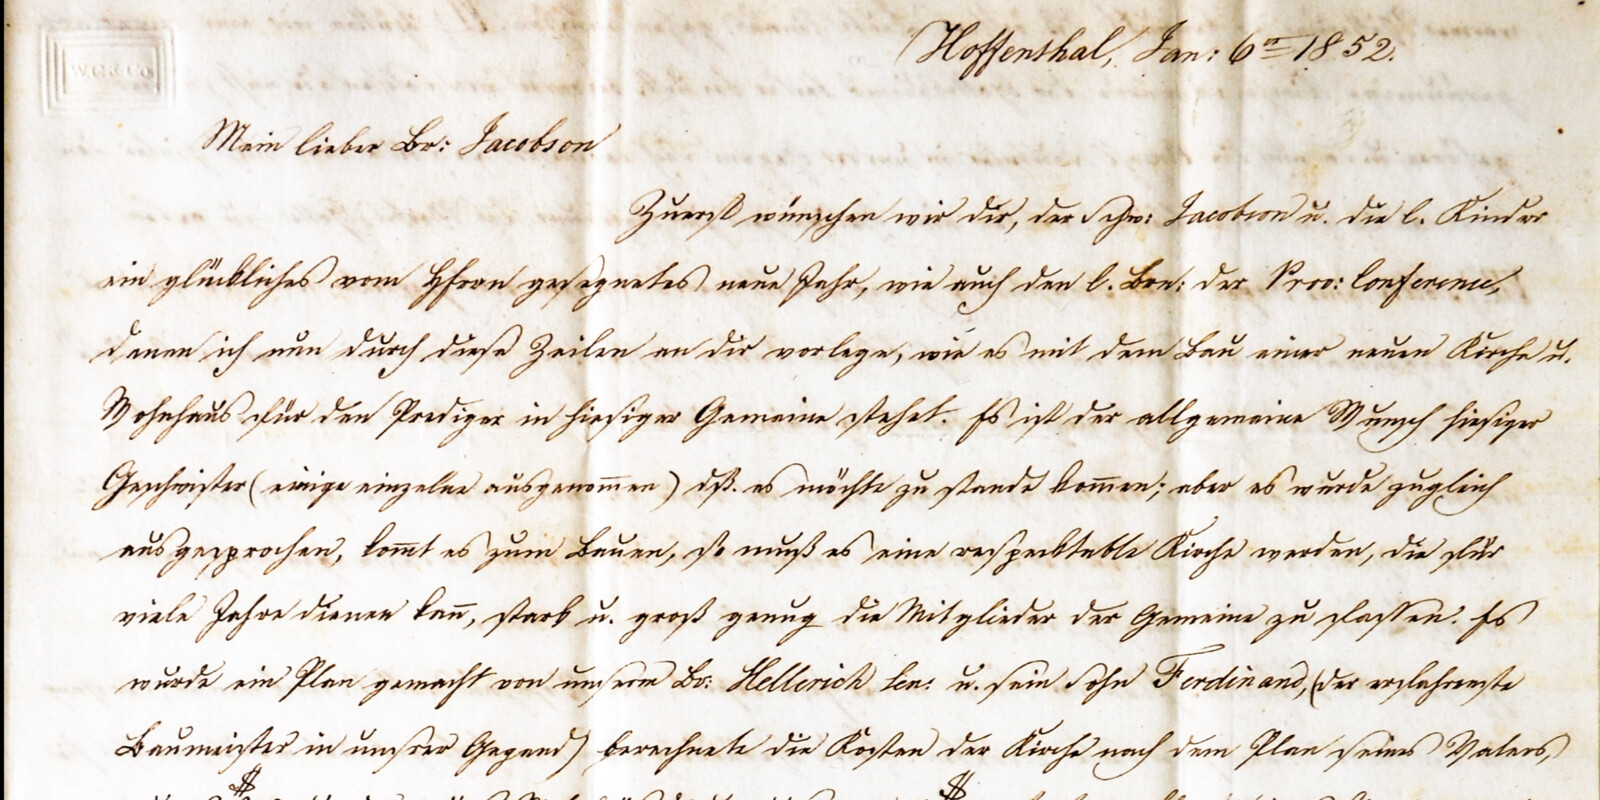 Hoffenthal, Jan: 6n 1852.
Mein lieber Br: Jacobson
Zuerst wünschen wir dir, der Schw: Jacobson u. die l. Kinder
ein glückliches vom Herrn gesegnetes neue Jahr, wie auch den l. Brn: der Prov: Conference,
denen ich nun durch diese Zeilen an dir vorlege, wie es mit dem Bau einer neuen Kirche u.
Wohnhaus für den Prediger in hiesiger Gemeine stehet. Es ist der allgemeine Wunsch hiesiger
Geschwister (einige einzelne ausgenom̄en) dß. es möchte zu stande kom̄en; aber es wurde zugleich
ausgesprochen, kom̄t es zum Bauen, so muß es eine respecktable Kirche werden, die für
viele Jahre dienen kan̄, stark u. groß genug die Mitglieder der Gemeine zu fassen. Es
wurde ein Plan gemacht von unserm Br: Hellerich sen: u. sein Sohn Ferdinand, (der erfahrenste
Baumeister in unsrer Gegend) berechnete die Kosten der Kirche nach dem Plan seines Vaters,